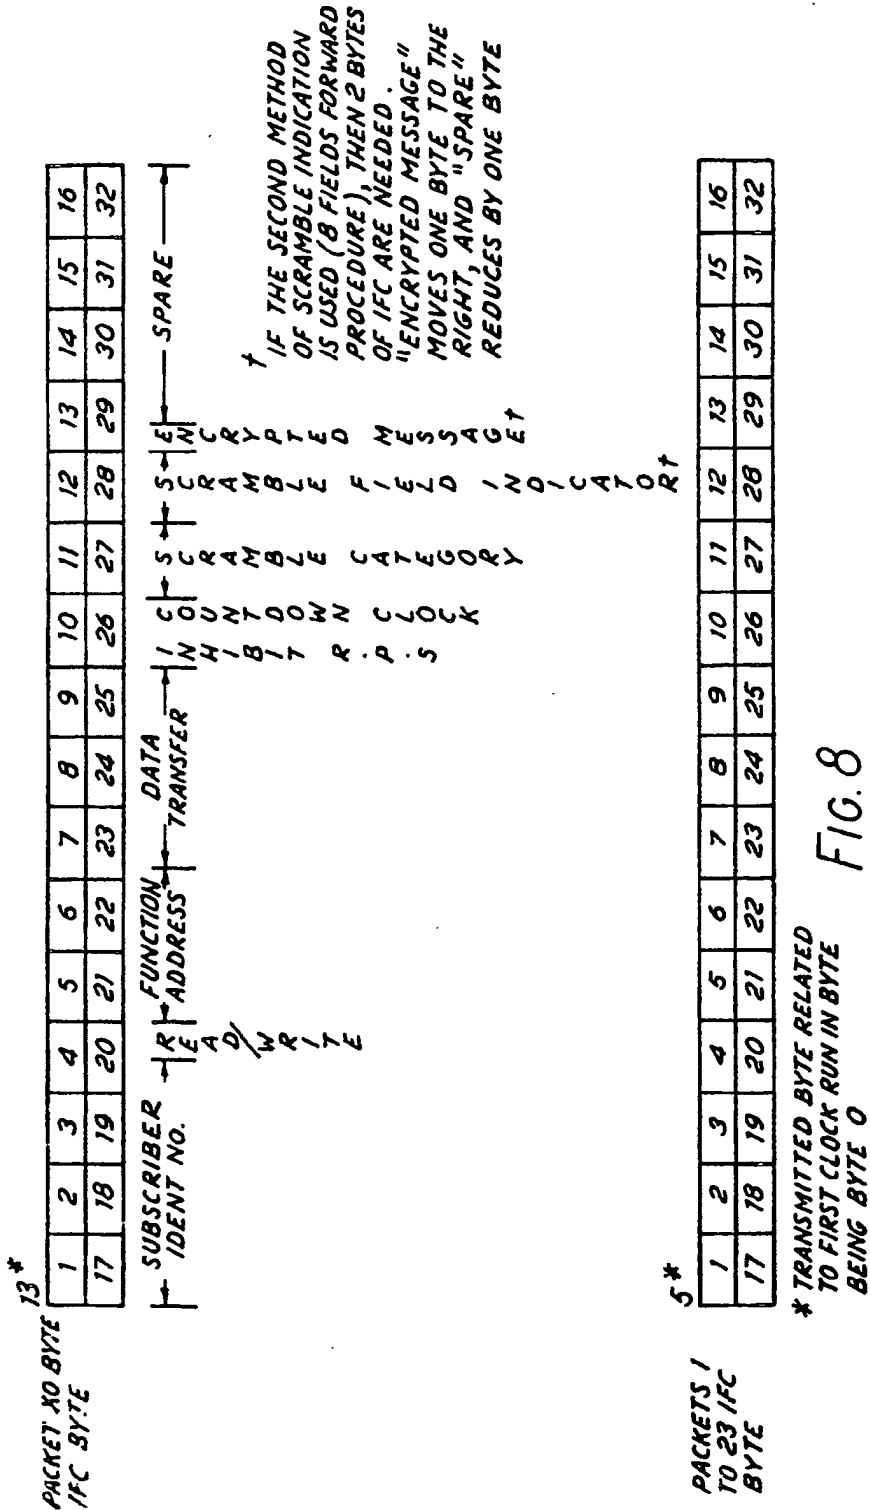 PACKET X0 BYTE
IFC BYTE
13*
1 2 3 4 5 6 7 8 9 10 11 12 13 14 15 16
17 18 19 20 21 22 23 24 25 26 27 28 29 30 31 32
SUBSCRIBER
IDENT NO.
READ/WRITE
FUNCTION
ADDRESS
DATA
TRANSFER
INHIBIT R.P.S
COUNTDOWN CLOCK
SCRAMBLE CATEGORY
SCRAMBLE FIELD INDICATOR†
ENCRYPTED MESSAGE†
SPARE
† IF THE SECOND METHOD
OF SCRAMBLE INDICATION
IS USED (8 FIELDS FORWARD
PROCEDURE), THEN 2 BYTES
OF IFC ARE NEEDED.
"ENCRYPTED MESSAGE"
MOVES ONE BYTE TO THE
RIGHT, AND "SPARE"
REDUCES BY ONE BYTE
PACKETS 1
TO 23 IFC
BYTE
5*
1 2 3 4 5 6 7 8 9 10 11 12 13 14 15 16
17 18 19 20 21 22 23 24 25 26 27 28 29 30 31 32
* TRANSMITTED BYTE RELATED
TO FIRST CLOCK RUN IN BYTE
BEING BYTE 0
FIG. 8